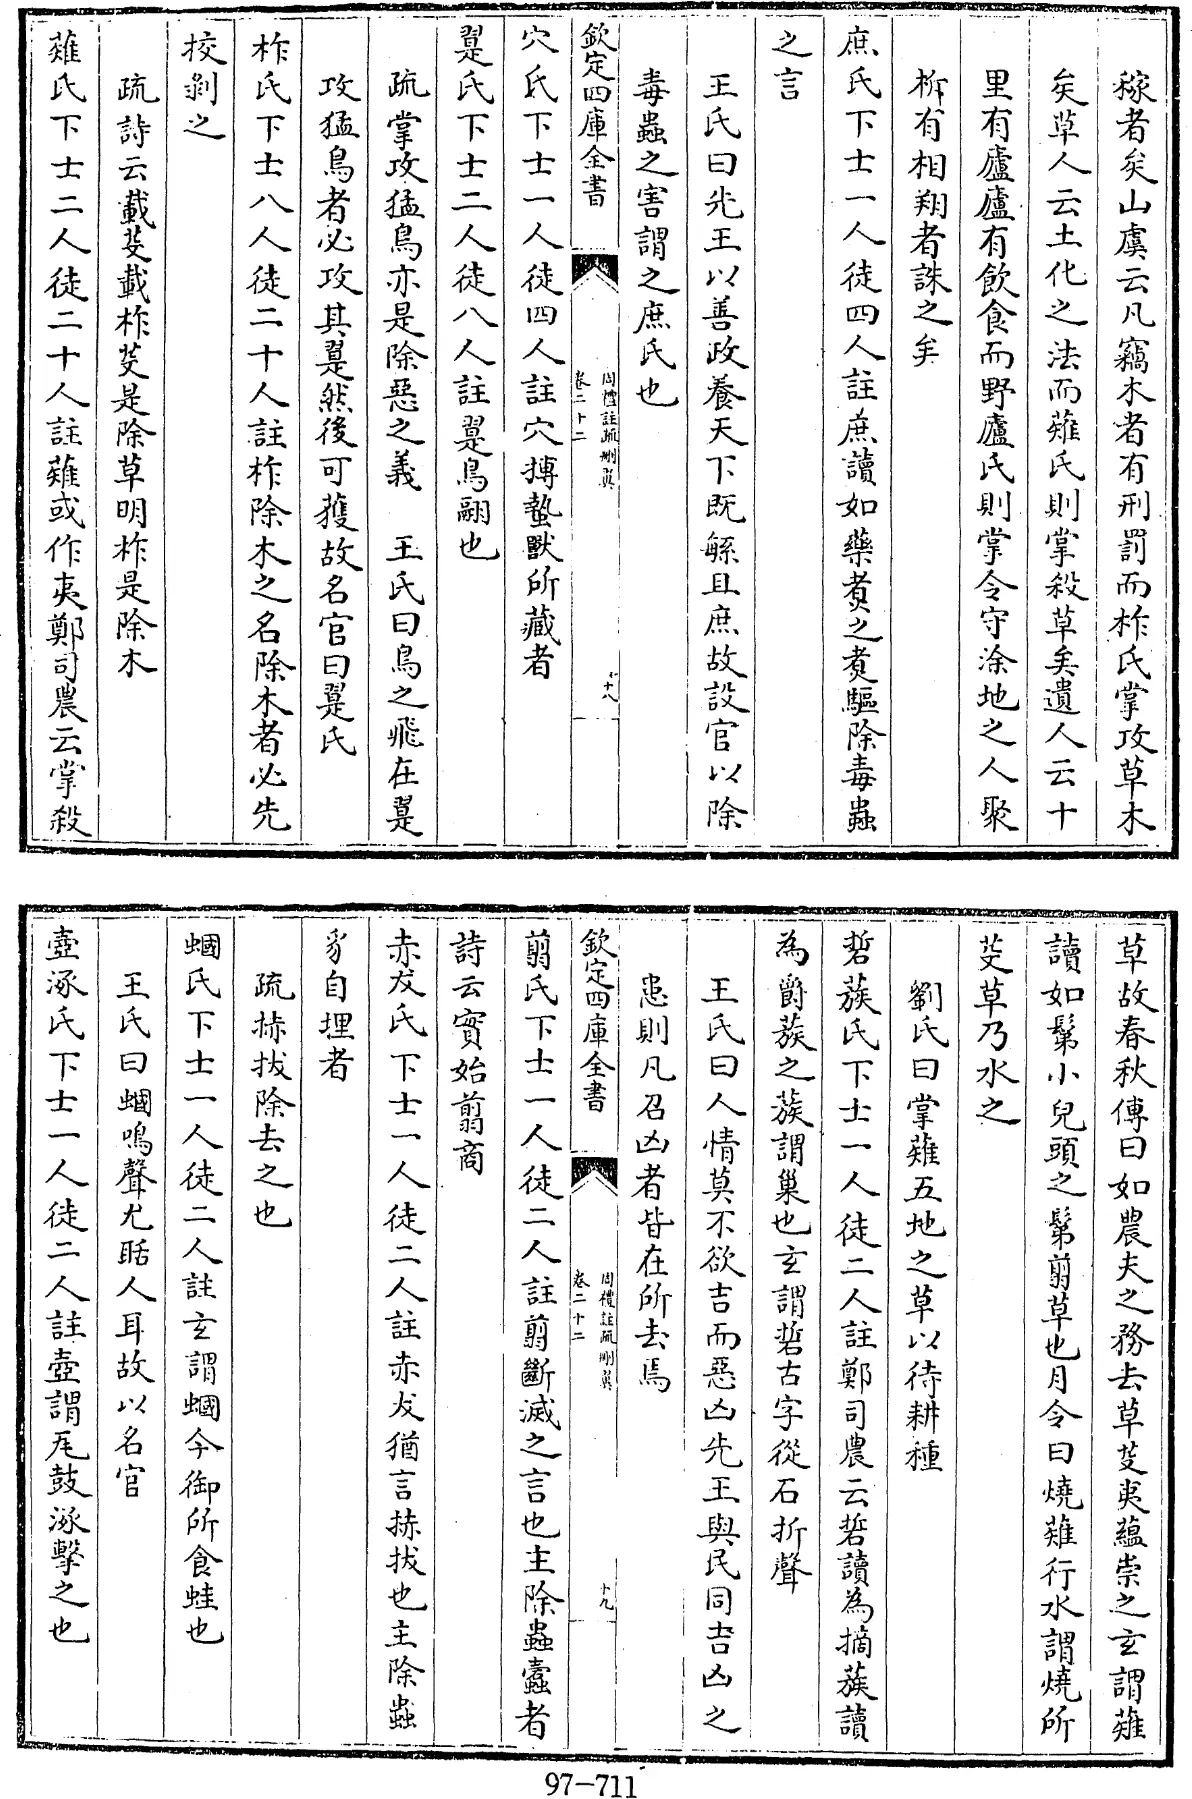 稼者矣山虞云凡竊木者有刑罰而柞氏掌攻草木
矣草人云土化之法而薙氏則掌殺草矣遺人云十
里有廬廬有飲食而野廬氏則掌令守涂地之人聚
柝有相翔者誅之矣
庶氏下士一人徒四人註庶讀如藥煑之煑驅除毒蟲
之言
王氏曰先王以善政養天下既繇且庶故設官以除
毒蟲之害謂之庶氏也
欽定四庫全書
周禮註疏刪翼
卷二十二
十八
穴氏下士一人徒四人註穴搏蟄獸所藏者
翨氏下士二人徒八人註翨鳥翮也
疏掌攻猛鳥亦是除惡之義 王氏曰鳥之飛在翨
攻猛鳥者必攻其翨然後可獲故名官曰翨氏
柞氏下士八人徒二十人註柞除木之名除木者必先
挍剝之
疏詩云載芟載柞芟是除草明柞是除木
薙氏下士二人徒二十人註薙或作夷鄭司農云掌殺
草故春秋傳曰如農夫之務去草芟夷蘊崇之玄謂薙
讀如鬀小兒頭之鬀翦草也月令曰燒薙行水謂燒所
芟草乃水之
劉氏曰掌薙五地之草以待耕種
硩蔟氏下士一人徒二人註鄭司農云硩讀為擿蔟讀
為爵蔟之蔟謂巢也玄謂硩古字從石折聲
王氏曰人情莫不欲吉而惡凶先王與民同吉凶之
患則凡召凶者皆在所去焉
欽定四庫全書
周禮註疏刪翼
卷二十二
十九
翦氏下士一人徒二人註翦斷滅之言也主除蟲蠹者
詩云實始翦商
赤犮氏下士一人徒二人註赤犮猶言捇拔也主除蟲
豸自埋者
疏捇拔除去之也
蟈氏下士一人徒二人註玄謂蟈今御所食蛙也
王氏曰蟈鳴聲尤聒人耳故以名官
壺涿氏下士一人徒二人註壺謂瓦鼓涿擊之也
97-711